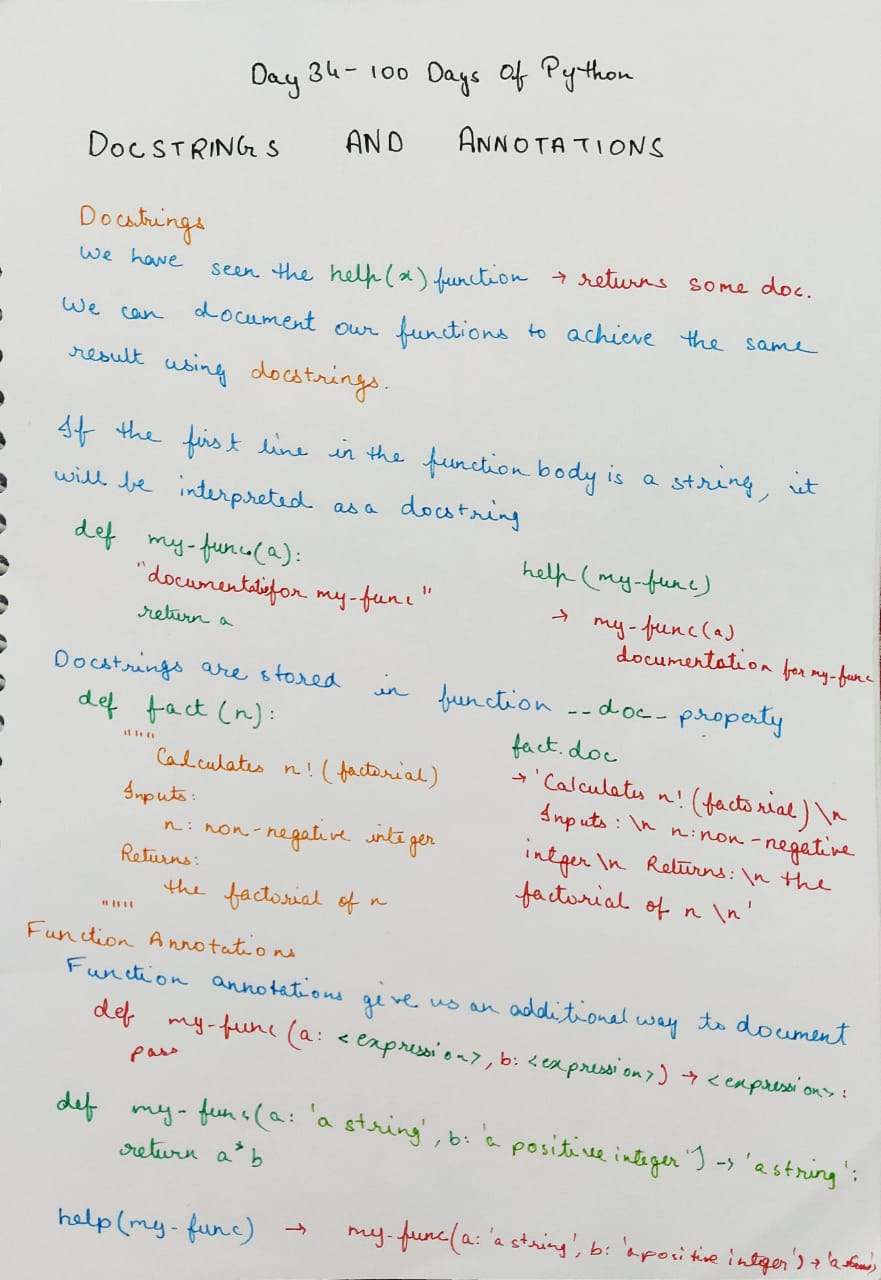 Day 34 - 100 Days Of Python
DOCSTRINGS AND ANNOTATIONS
Docstrings
We have seen the help(x) function → returns some doc.
We can document our functions to achieve the same
result using docstrings.
If the first line in the function body is a string, it
will be interpreted as a docstring
def my-func(a):
"documentatiofor my-func"
return a
help(my-func)
→ my-func(a)
documentation for my-func
Docstrings are stored in function __doc_ property
def fact(n):
"""
Calculates n! (factorial)
Inputs:
n: non-negative integer
Returns:
the factorial of n
"""
fact.doc
→ 'Calculates n! (factorial) \n
Inputs: \n n:non-negative
intger \n Returns: \n the
factorial of n \n'
Function Annotations
Function annotations give us an additional way to document
def my-func (a: <expression>, b: <expression>) → <expression>:
pass
def my-func(a: 'a string', b: 'a positive integer') -> 'a string':
return a*b
help(my-func) → my-func(a: 'a string', b: 'a positive integer') → 'a string')